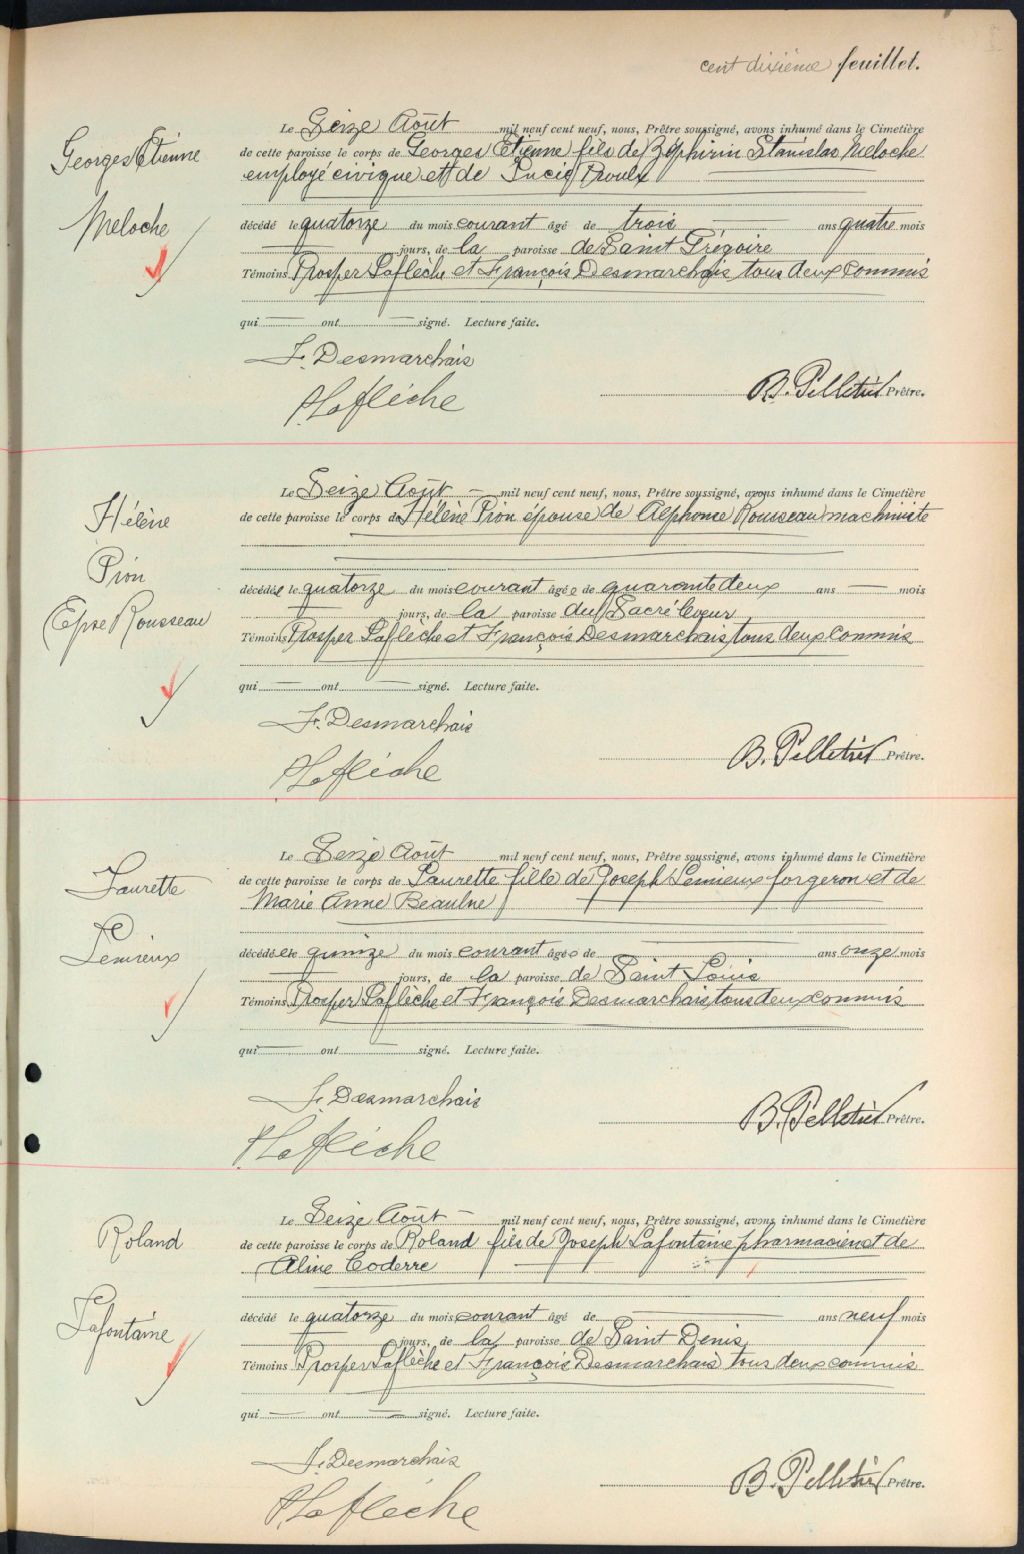 cent dixième feuillet.
Georges Etienne
Meloche
Le Seize Août mil neuf cent neuf, nous, Prêtre soussigné, avons inhumé dans le Cimetière
de cette paroisse le corps de Georges Etienne fils de Zéphirin Stanislas Meloche
employé civique et de Lucie Proulx
décédé le quatorze du mois courant âgé de trois ans quatre mois
jours, de la paroisse de Saint Grégoire
Témoins Prosper Laflèche et François Desmarchais tous deux commis
qui ont signé. Lecture faite.
F. Desmarchais
P Laflèche
B. Pelletier Prêtre.
Hélène
Pion
Epse Rousseau
Le Seize Août mil neuf cent neuf, nous, Prêtre soussigné, avons inhumé dans le Cimetière
de cette paroisse le corps de Hélène Pion épouse de Alphonse Rousseau machiniste
décédée le quatorze du mois courant âgée de quarante deux ans mois
jours, de la paroisse du Sacré Coeur
Témoins Prosper Laflèche et François Desmarchais tous deux commis
qui ont signé. Lecture faite.
F. Desmarchais
P Laflèche
B. Pelletier Prêtre.
Laurette
Lemieux
Le Seize Août mil neuf cent neuf, nous, Prêtre soussigné, avons inhumé dans le Cimetière
de cette paroisse le corps de Laurette fille de Joseph Lemieux forgeron et de
Marie Anne Beaulne
décédée quinze du mois courant âgée de ans onze mois
jours, de la paroisse de Saint Louis
Témoins Prosper Laflèche et François Desmarchais tous deux commis
qui ont signé. Lecture faite.
F. Desmarchais
P Laflèche
B. Pelletier Prêtre.
Roland
Lafontaine
Le Seize Août mil neuf cent neuf, nous, Prêtre soussigné, avons inhumé dans le Cimetière
de cette paroisse le corps de Roland fils de Joseph Lafontaine pharmacien et de
Aline Coderre
décédé le quatorze du mois courant âgé de ans neuf mois
jours, de la paroisse de Saint Denis
Témoins Prosper Laflèche et François Desmarchais tous deux commis
qui ont signé. Lecture faite.
F. Desmarchais
P Laflèche
B. Pelletier Prêtre.